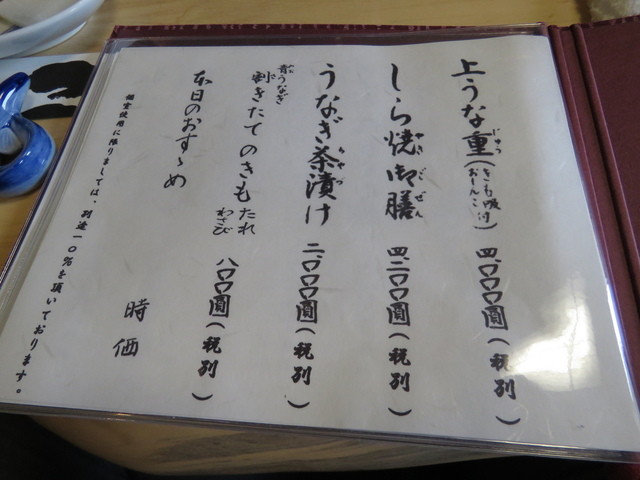 上うな重(きも吸付 おしんこ) 四、〇〇〇圓(税別)
じゅう
しら焼御膳 四、二〇〇圓(税別)
やき ごぜん
うなぎ茶漬け 二、〇〇〇圓(税別)
ちゃづ
割きたてのきも たれ わさび 八〇〇圓(税別)
うなぎ
本日のおすゝめ 時価
個室使用に限りましては、別途一〇%を頂いております。